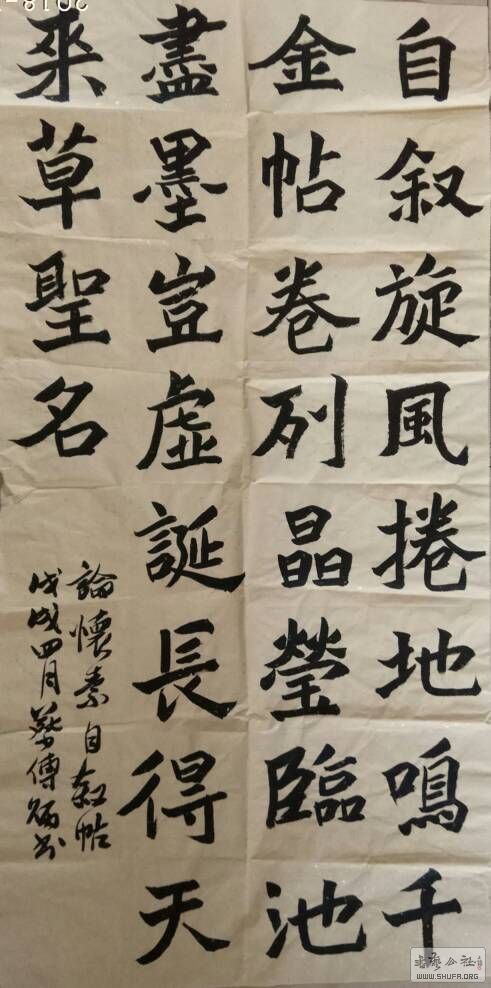 自叙旋風捲地鳴千
金帖卷列晶瑩臨池
盡墨豈虛誕長得天
來草聖名
論懷素自叙帖
戊戌四月蔡傳炳书
書藝公社
WWW.SHUFA.ORG
2018-